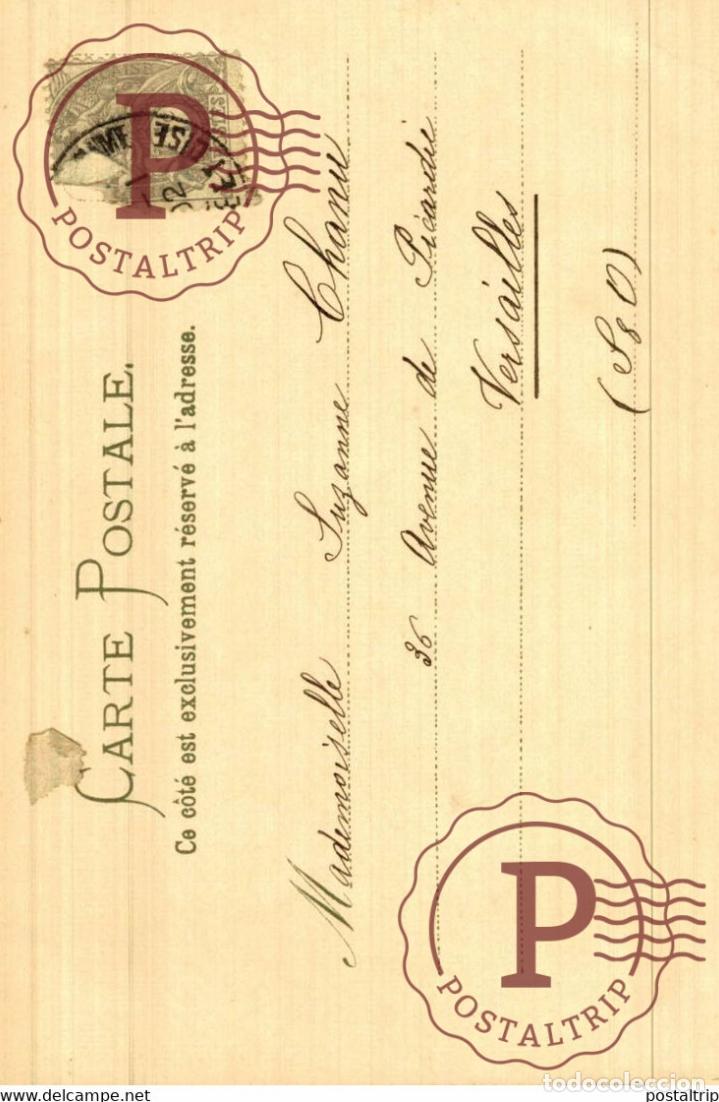 CARTE POSTALE.
Ce côté est exclusivement réservé à l'adresse.
Mademoiselle Suzanne Chanu
36 Avenue de Picardie
Versailles
(S & O)
P
POSTALTRIP
P
POSTALTRIP
02
todocoleccion
www.todocoleccion.net
postaltrip